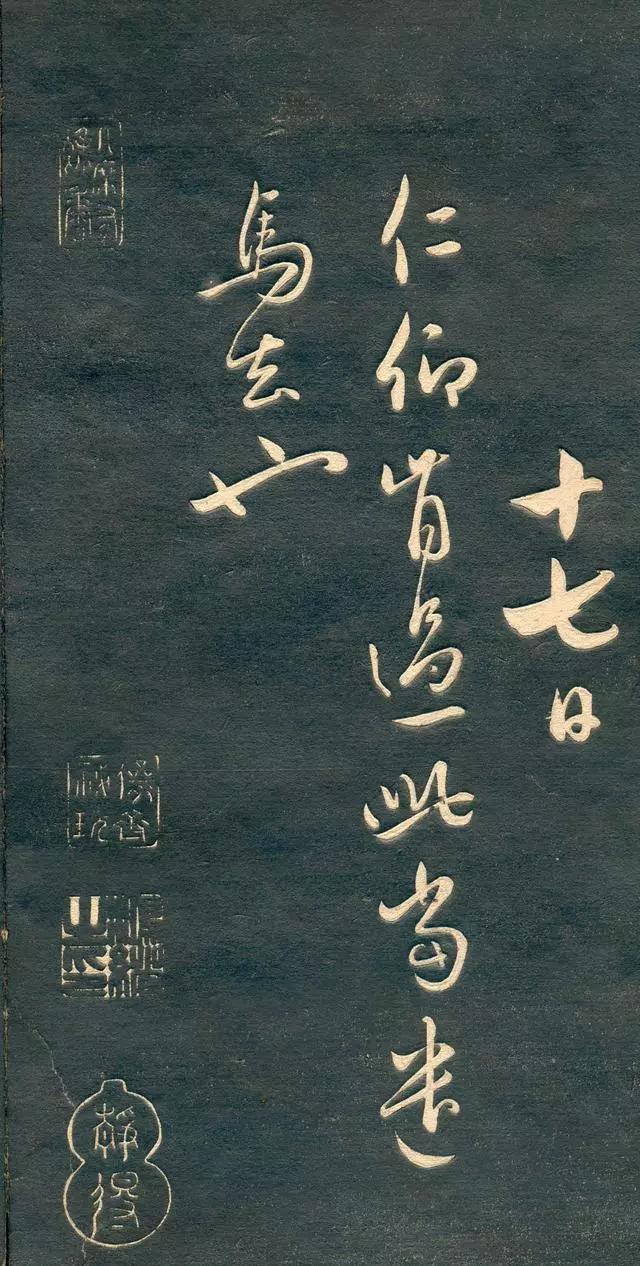 十七日
仁仰肯過此當遣
馬去也
靜得